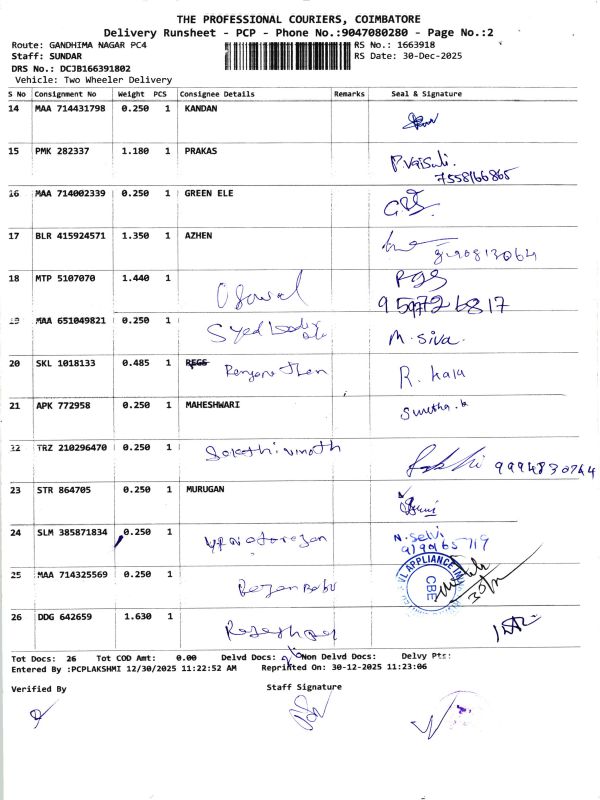 THE PROFESSIONAL COURIERS, COIMBATORE
Delivery Runsheet - PCP - Phone No.:9047080280 - Page No.:2
Route: GANDHIMA NAGAR PC4 RS No.: 1663918
Staff: SUNDAR RS Date: 30-Dec-2025
DRS No.: DCJB166391802
Vehicle: Two Wheeler Delivery
S No Consignment No Weight PCS Consignee Details Remarks Seal & Signature
14 MAA 714431798 0.250 1 KANDAN
15 PMK 282337 1.180 1 PRAKAS P.Vaisali.
7558166865
16 MAA 714002339 0.250 1 GREEN ELE
17 BLR 415924571 1.350 1 AZHEN
18 MTP 5107070 1.440 1
19 MAA 651049821 0.250 1 Syed M. Siva.
20 SKL 1018133 0.485 1 R. Kala
21 APK 772958 0.250 1 MAHESHWARI
22 TRZ 210296470 0.250 1 Sakthi vinoth 9994830744
23 STR 864705 0.250 1 MURUGAN
24 SLM 385871834 0.250 1 N. Selvi
25 MAA 714325569 0.250 1 CBE
26 DDG 642659 1.630 1
Tot Docs: 26 Tot COD Amt: 0.00 Delvd Docs: Non Delvd Docs: Delvy Pts:
Entered By :PCPLAKSHMI 12/30/2025 11:22:52 AM Reprinted On: 30-12-2025 11:23:06
Verified By Staff Signature